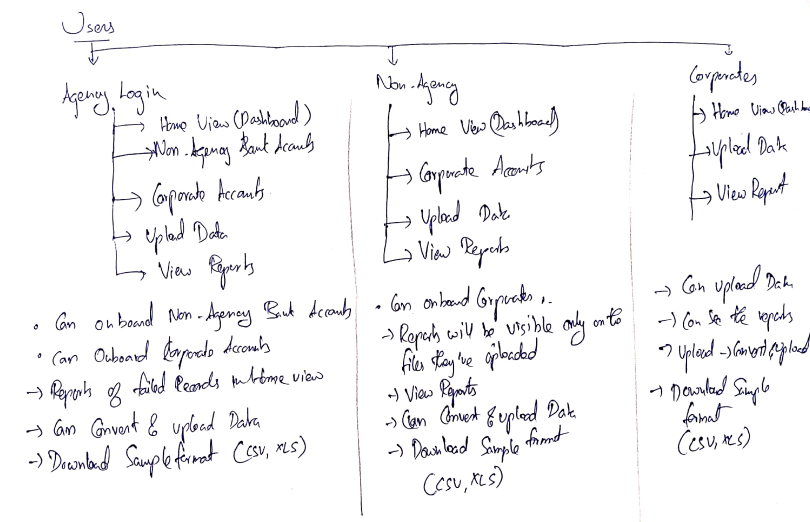 Users
Agency Login
Home View (Dashboard)
Non-Agency Bank Accounts
Corporate Accounts
Upload Data
View Reports
• Can onboard Non-Agency Bank Accounts
• Can Onboard Corporate Accounts
→ Reports of failed Records in Home view
→ Can Convert & upload Data
→ Download Sample format (CSV, XLS)
Non-Agency
Home View (Dashboard)
Corporate Accounts
Upload Data
View Reports
• Can onboard Corporates
→ Reports will be visible only on the
files they've uploaded
→ View Reports
→ Can Convert & upload Data
→ Download Sample format
(CSV, XLS)
Corporates
Home View
Upload Data
View Report
→ Can upload Data
→ Can see the reports
Upload → Convert & upload
→ Download Sample
format
(CSV, XLS)